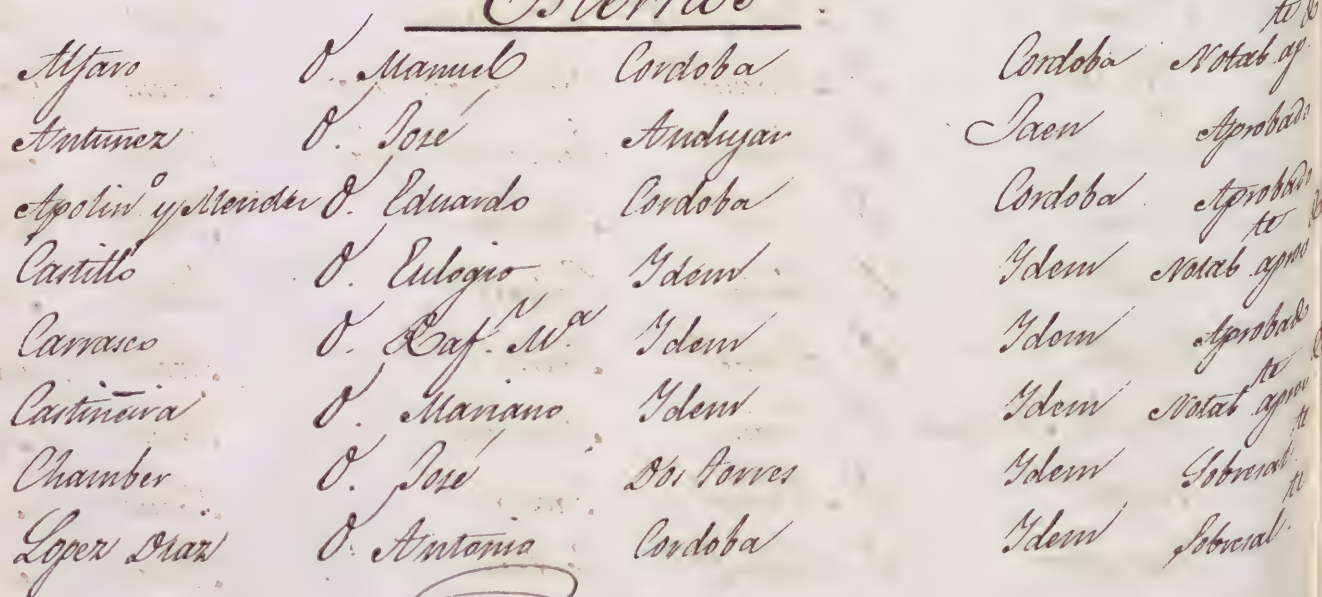 Esternos.
Alfaro D. Manuel Cordoba Cordoba Notab.te ap.
Antunez D. José Andujar Jaen Aprobado
Apolin.o y Mendez D. Eduardo Cordoba Cordoba Aprobado
Castillo D. Eulogio Idem Idem Notab.te
Carrasco D. Raf.l M.a Idem Idem Aprobado
Castiñeira D. Mariano Idem Idem Notab.te
Chamber D. José Dos Torres Idem Sobresal.te
Lopez Diaz D. Antonio Cordoba Idem Sobresal.te